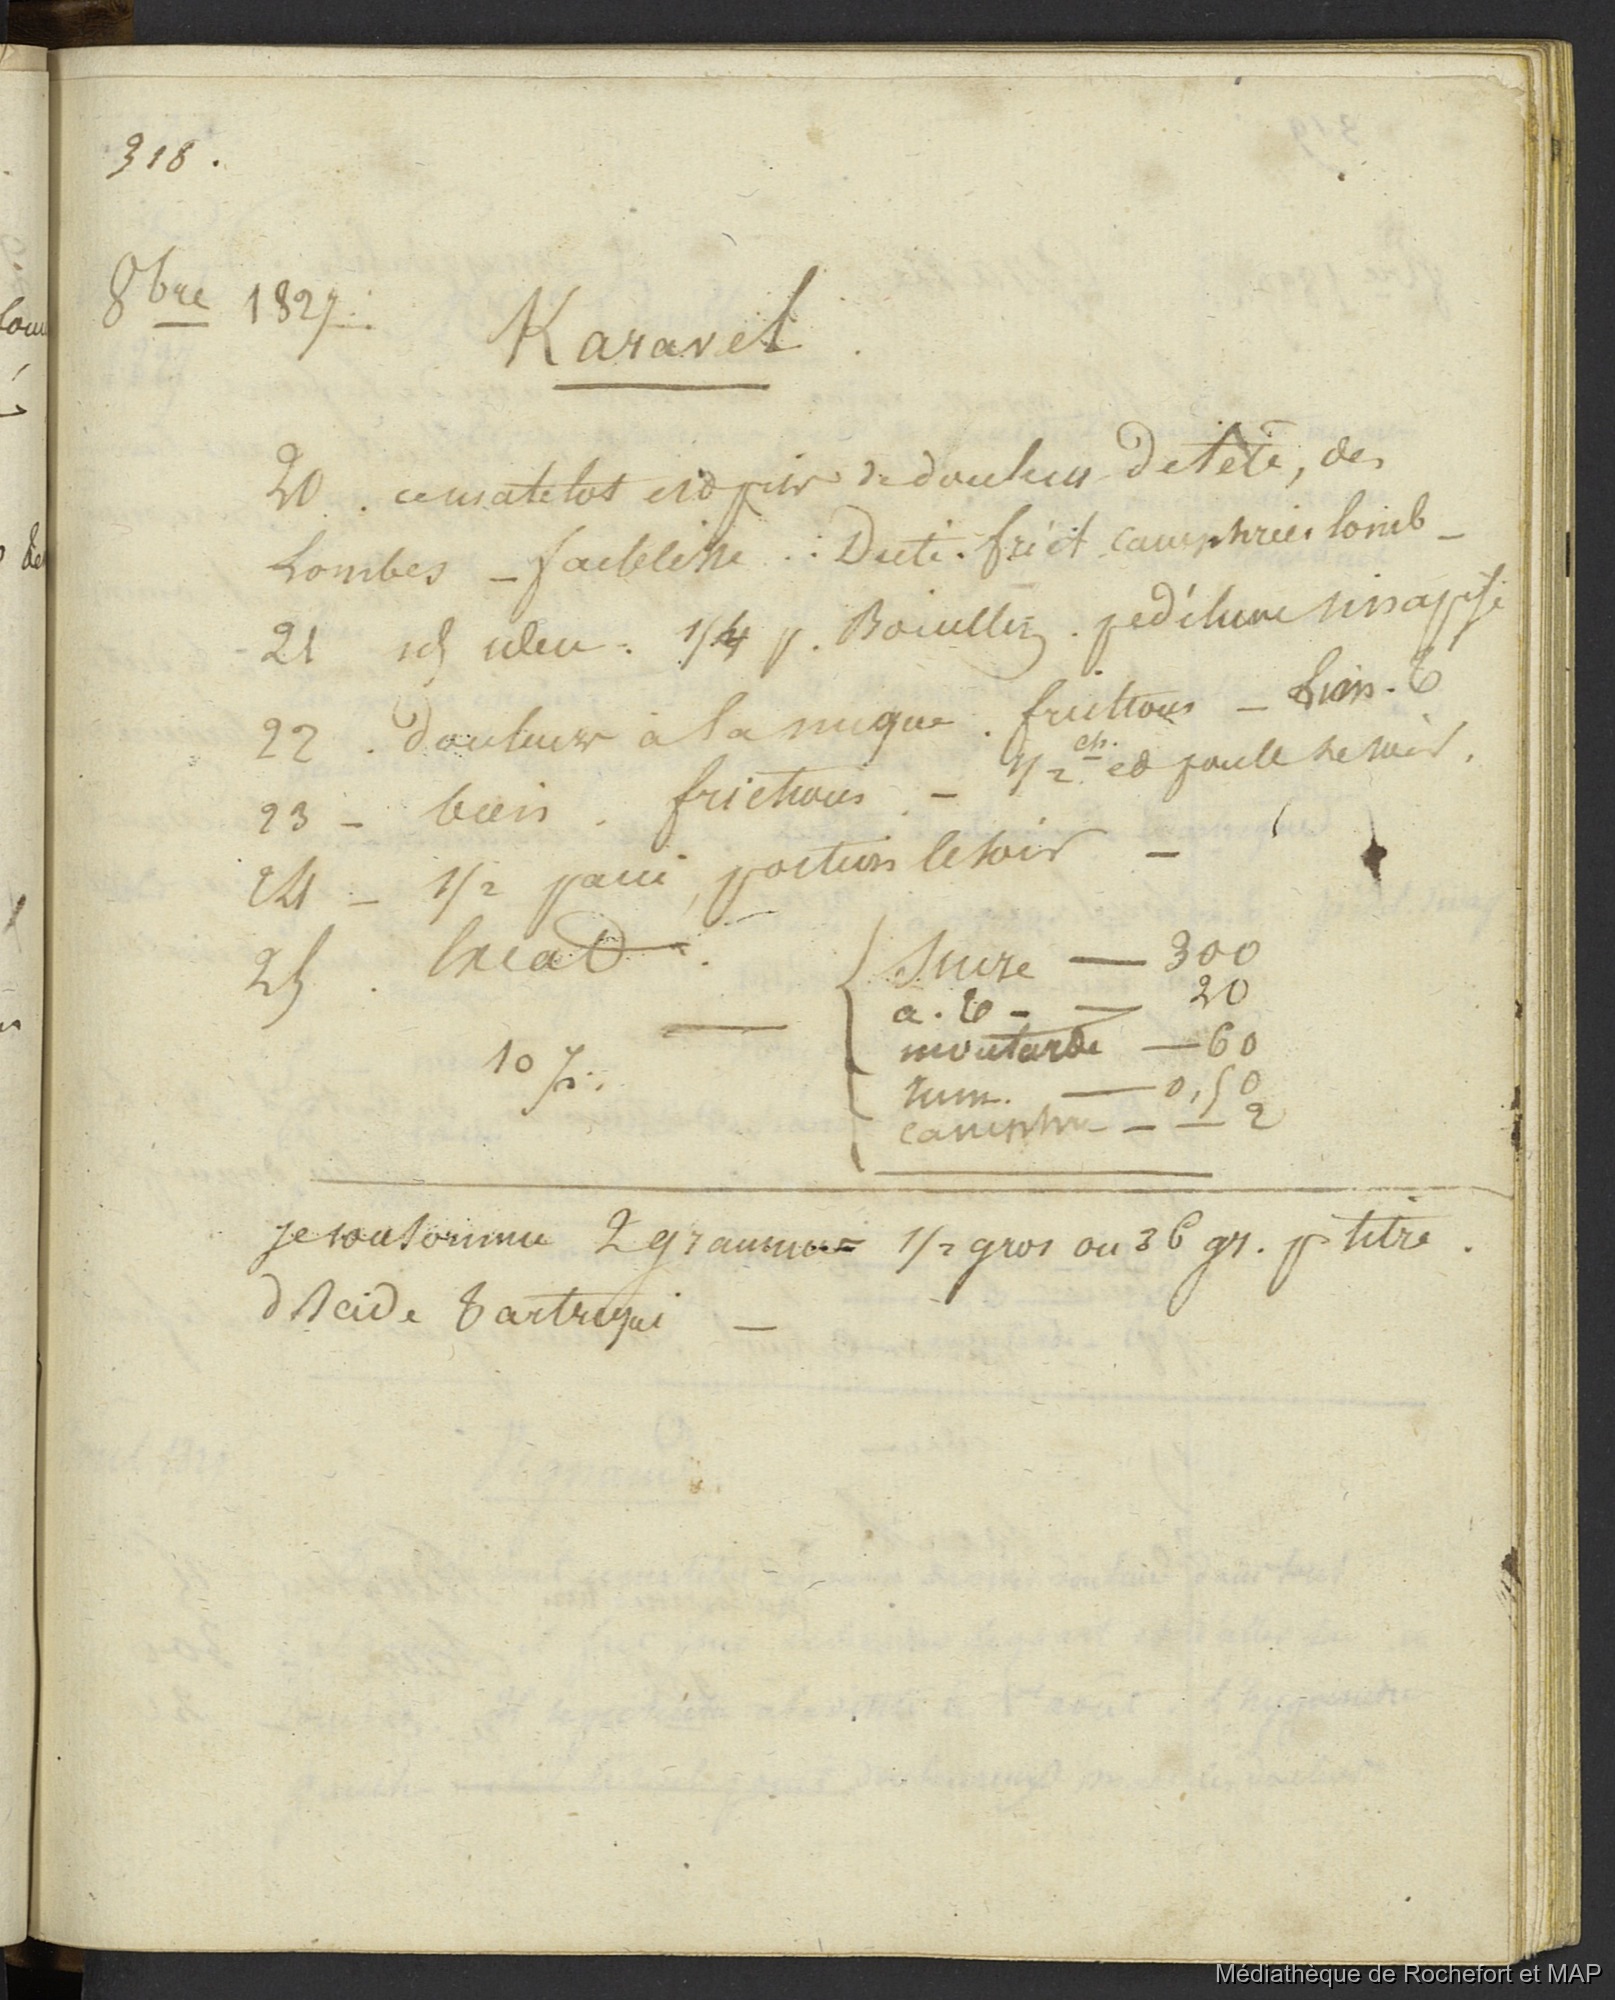 318.
8bre 1827.
Karavel.
20. ce matelot est pris de douleurs de tête, des
Lombes - faiblesse. : Diète. frict camphrées lomb -
21 id idem. 1/4 p. Bouillon. pédiluve sinapisé
22. douleurs à la nuque. frictions - lim. T
23 - bien. frictions. - 1/2 ch. et poule le soir.
24 - 1/2 pain, portion le soir -
25. exeat.
10 J.
Sucre — 300
a. T - — 20
moutarde — 60
rum. — 0,50
camphre - — 2
je consomme 2 grammes 1/2 gros ou 36 gr. p litre.
d'Acide Tartrique —
Médiathèque de Rochefort et MAP